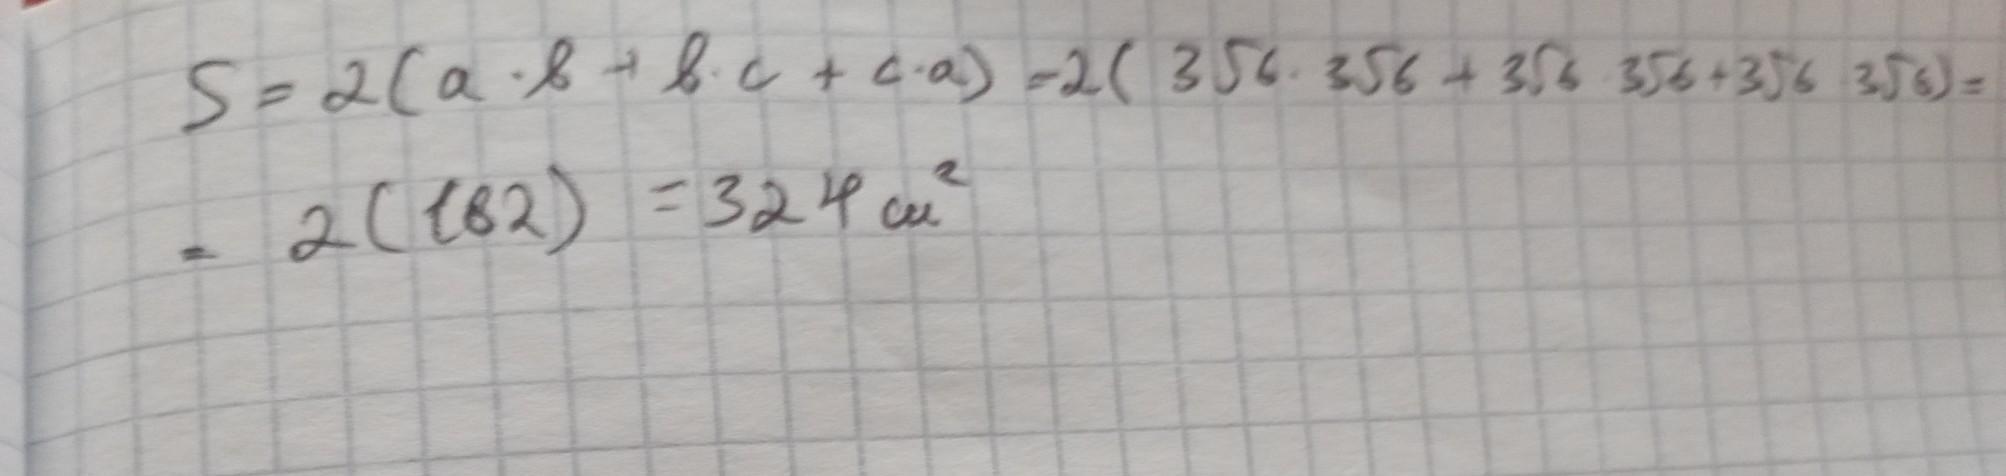 S = 2(a · b + b · c + c · a) = 2(356 · 356 + 356 · 356 + 356 356) =
= 2(162) = 324 см²